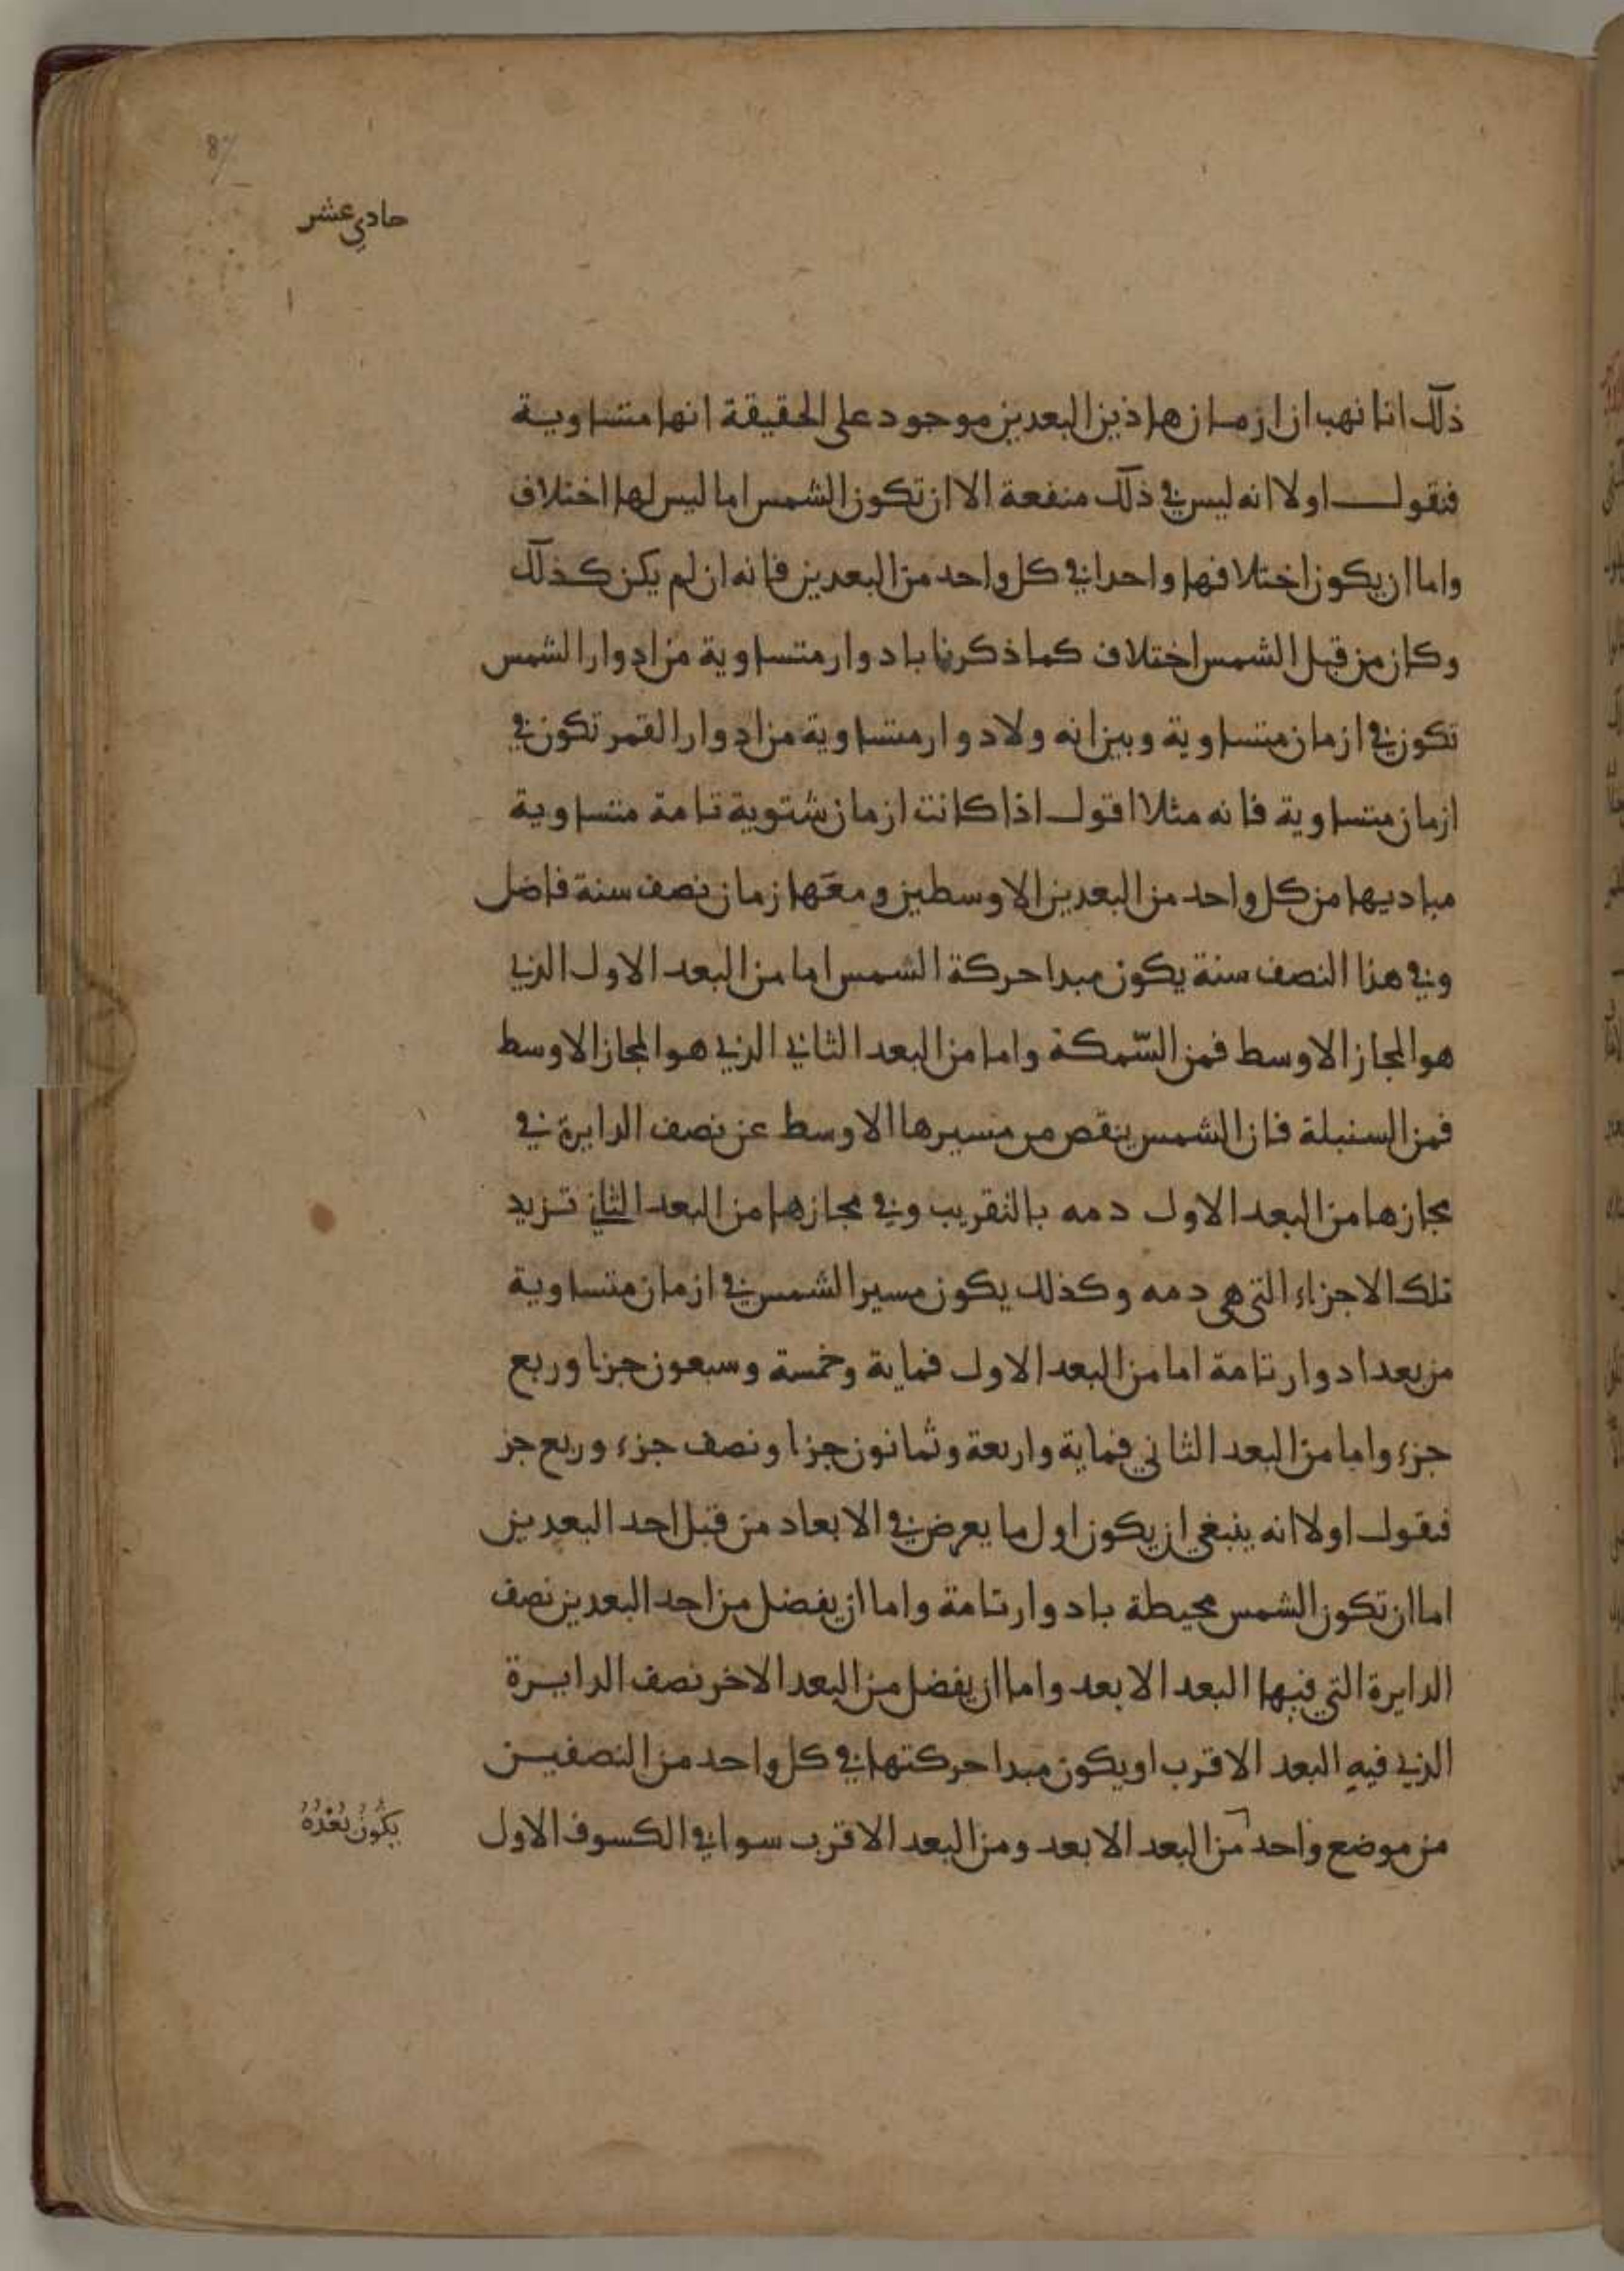 حادي عشر
ذلك انا نهب ان ازمان هاذين البعدين موجود على الحقيقة انها متساوية
فنقول اولا انه ليس في ذلك منفعة الا ان تكون الشمس اما ليس لها اختلاف
واما ان يكون اختلافها واحدا في كل واحد من البعدين فانه ان لم يكن كذلك
وكان من قبل الشمس اختلاف كما ذكرنا بادوار متساوية من ادوار الشمس
تكون في ازمان متساوية وبين انه ولا دوار متساوية من ادوار القمر تكون في
ازمان متساوية فانه مثلا اقول اذا كانت ازمان شتوية تامة متساوية
مباديها من كل واحد من البعدين الاوسطين ومعها زمان نصف سنة فاضل
وفي هذا النصف سنة يكون مبدا حركة الشمس اما من البعد الاول الذي
هو المجاز الاوسط فمن السّمكة واما من البعد الثاني الذي هو المجاز الاوسط
فمن السنبلة فان الشمس ينقص من مسيرها الاوسط عن نصف الدايرة في
مجازها من البعد الاول د مه بالتقريب وفي مجازها من البعد الثاني تزيد
تلك الاجزاء التي هي د مه وكذلك يكون مسير الشمس في ازمان متساوية
من بعد ادوار تامة اما من البعد الاول فماية وخمسة وسبعون جزا وربع
جزء واما من البعد الثاني فماية واربعة وثمانون جزا ونصف جزء وربع جز
فنقول اولا انه ينبغي ان يكون اول ما يعرض في الابعاد من قبل احد البعدين
اما ان تكون الشمس محيطة بادوار تامة واما ان يفضل من احد البعدين نصف
الدايرة التي فيها البعد الابعد واما ان يفضل من البعد الاخر نصف الدايرة
الذي فيه البعد الاقرب او يكون مبدا حركتها في كل واحد من النصفين
من موضع واحد من البعد الابعد ومن البعد الاقرب سوا في الكسوف الاول
يكُونُ بُعْدُهُ